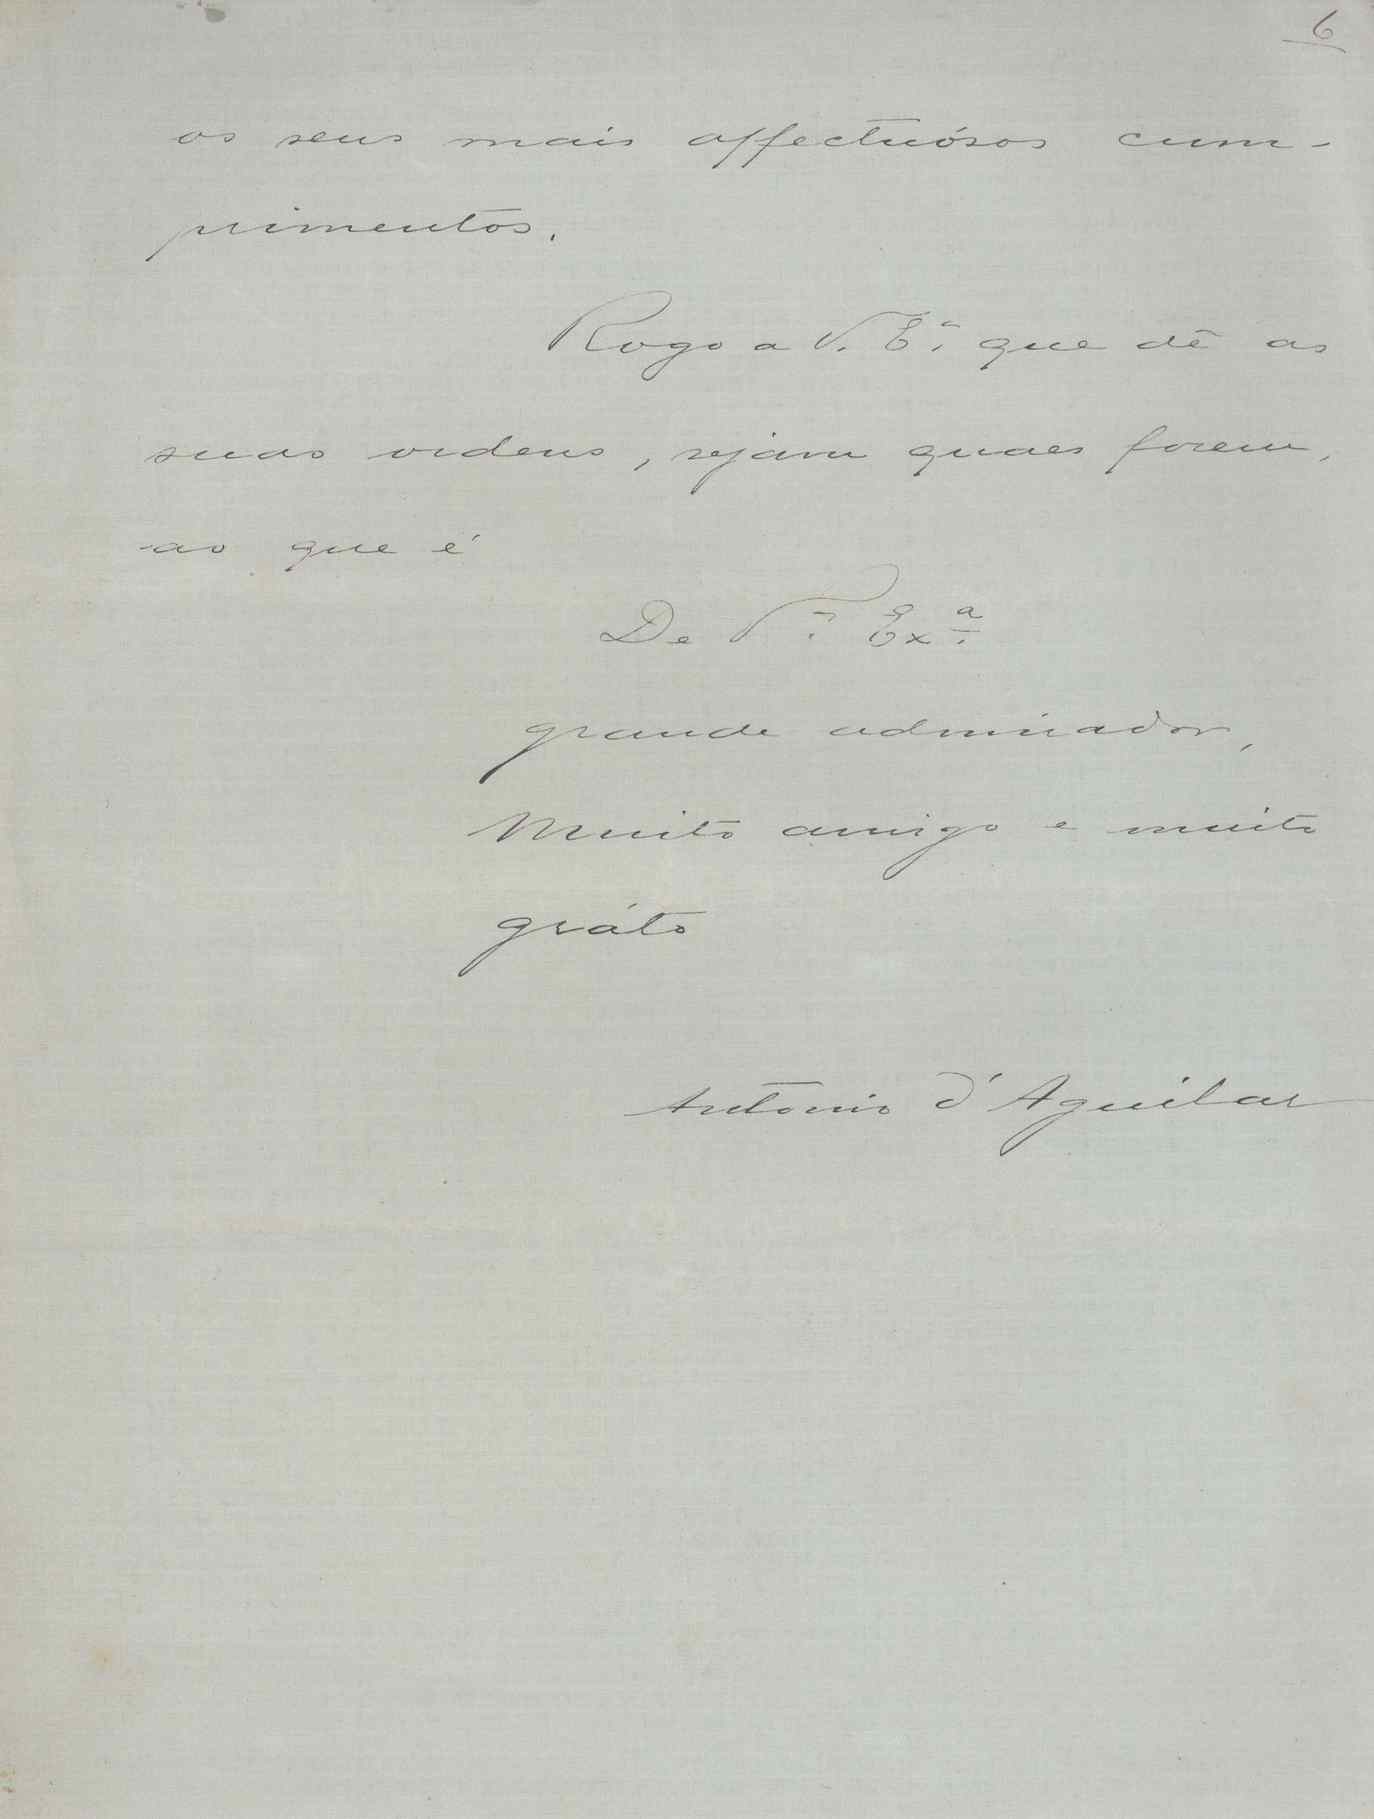 6
os seus mais affectuósos cum-
primentos.
Rogo a V. E.ª que dê as
suas ordens, sejam quaes forem,
ao que é
De V.ª Ex.ª
grande admirador,
Muito amigo e muito
gráto
Antonio d'Aguilar